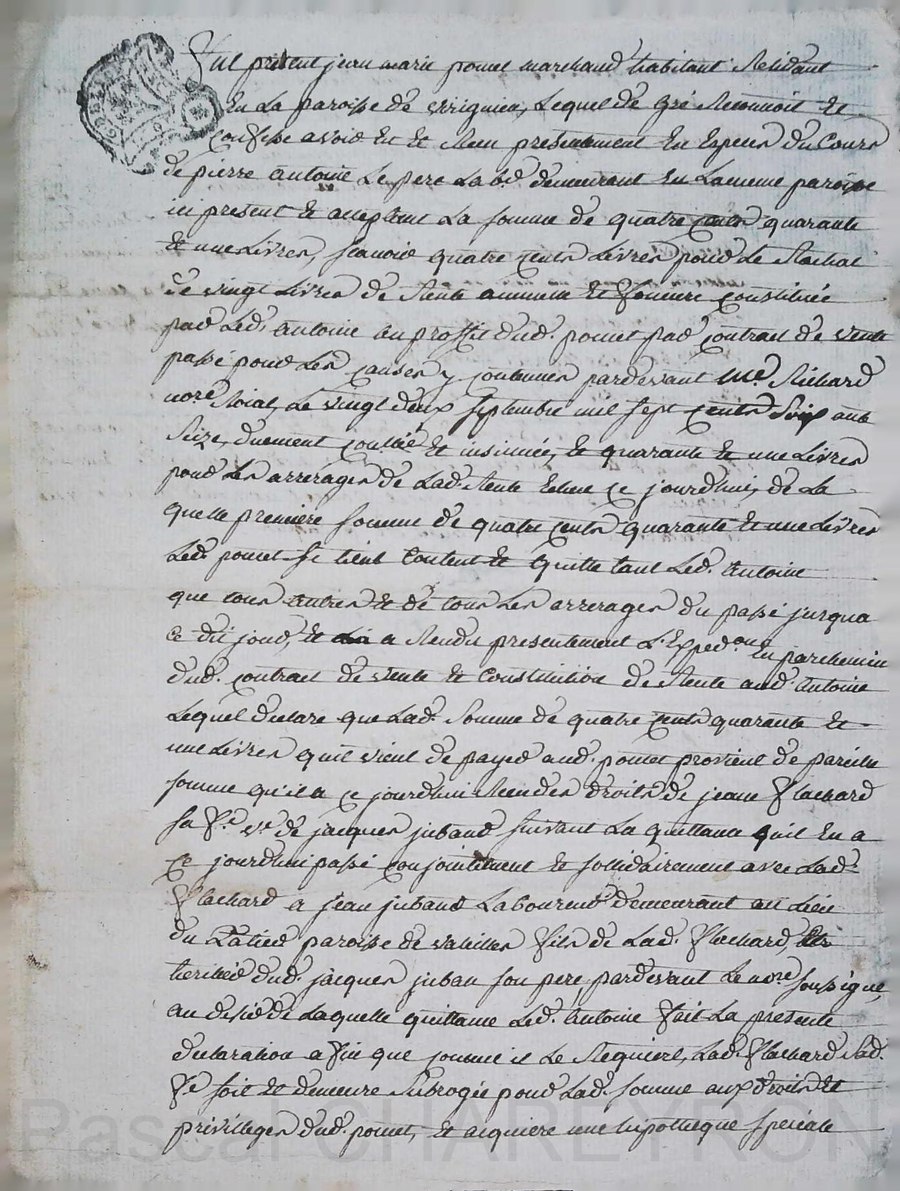 Fut présent jean marie pomet marchand habitant Résidant
En La paroisse de Virignieu, Lequel de gré Reconnoit et
Confesse avoir Eu et Receu présentement En Espèces du Cours
de pierre antoine Le pere Lab.r demeurant En La meme paroisse
ici présent et acceptant La somme de quatre cents quarante
Et une Livres, scavoir quatre cents Livres pour Le Rachat
de vingt Livres de Rente annuelle et foncière constituée
par Led. antoine au proffit dud. pomet par contrat de vente
passé pour Les causes y contenues pardevant Me Richard
nore Roial, Le vingt deux septembre mil sept cents soix ante
seize, duement conllé et insinué, et quarante et une Livres
pour Les arrerages de Lad. Rente Echue ce jourdhui, de La
quelle première somme de quatre cents quarante Et une Livres
Led. pomet se tient Content et Quitte tant Led. antoine
que tous autres et de tous Les arrerages du passé jusqua
ce dit jour, et a Rendu présentement L'Exped.one En parchemin
dud. contrat de vente et Constitution de Rente aud. antoine
Lequel déclare que Lad. somme de quatre cents quarante Et
une Livres quil vient de payer aud. pomet provient de pareille
somme qu'il a ce jourdhui Reçu des droits de jeane flachard
sa fe. ve. de jacques juband suivant La quittance quil En a
ce jourdhui passé conjointement et sollidairement avec Lad.
flachard a jean juband Laboureur demeurant au Lieu
du ratier paroisse de valeilles fils de Lad. flachard,
héritier dud. jacques juban son pere pardevant Le nore. soussigné,
au désir de Laquelle quittance Led. antoine fait La présente
déclaration a fin que comme il Le Requiere, Lad. flachard sad.
fe. soit et demeure subrogée pour Lad. somme aux droits et
privilèges dud. pomet, et acquiere une hipothèque speciale
Pascal CHAREYRON